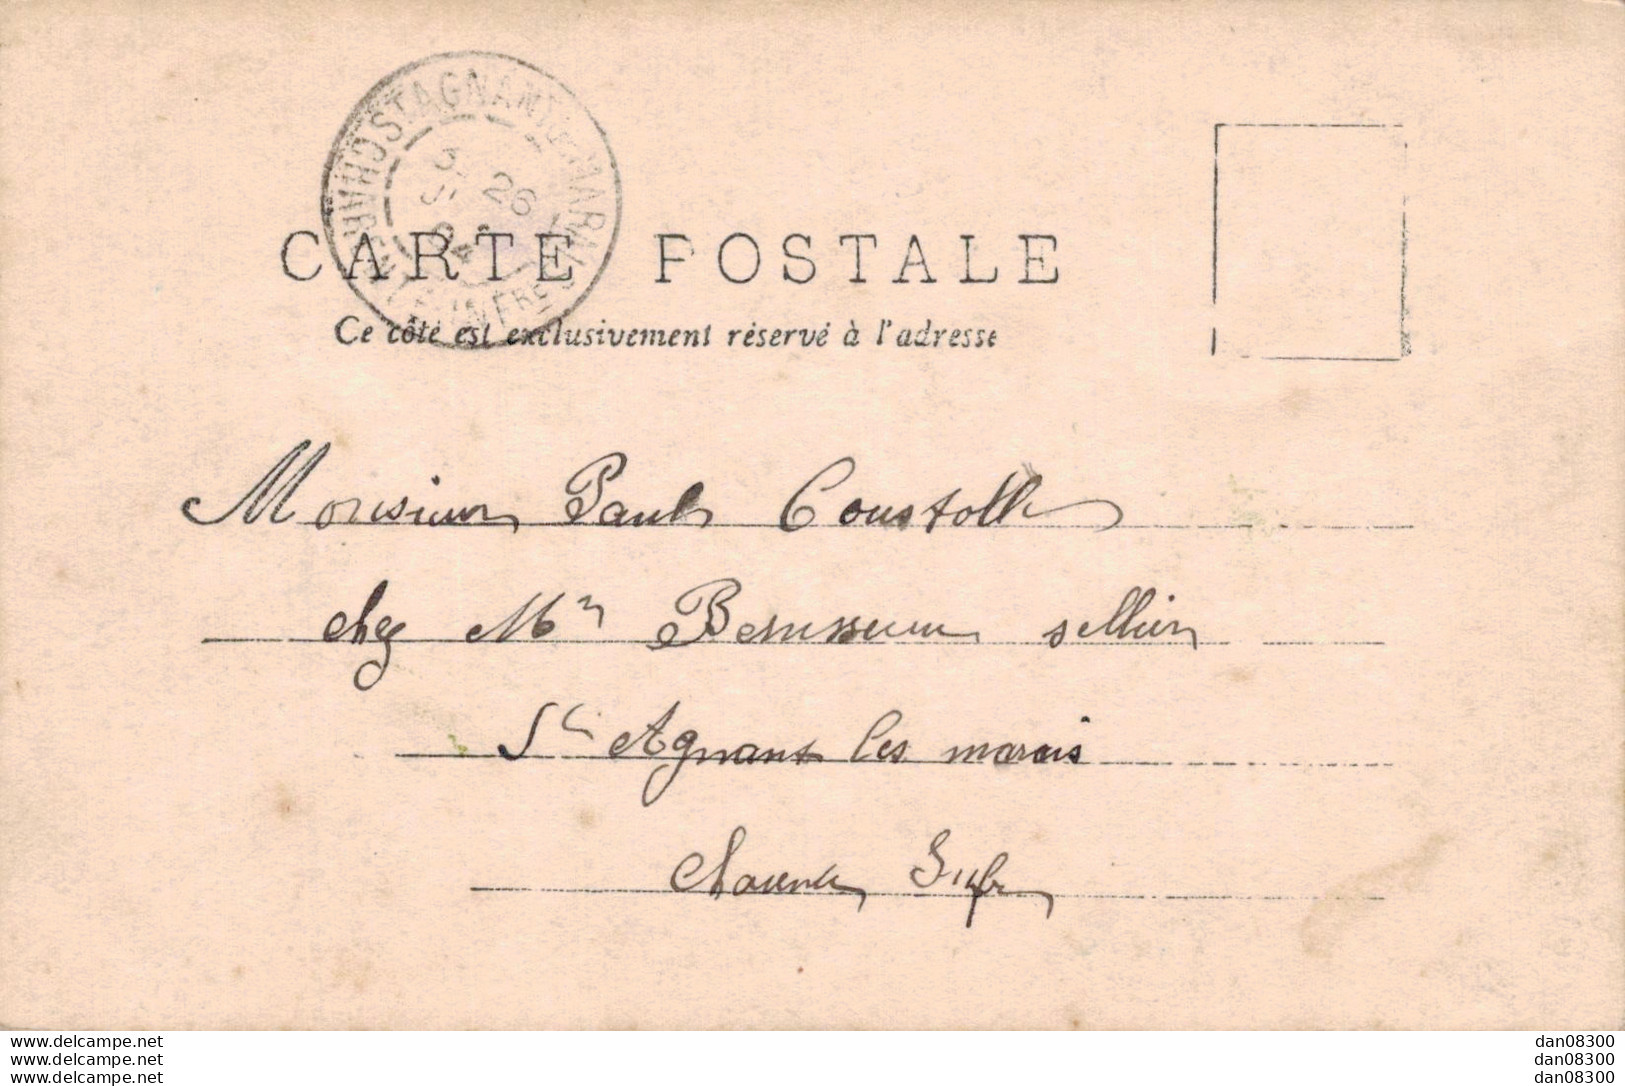 ST AGNANT-LES-MARAIS
CHARENTE INFRE
3E
26
04
CARTE POSTALE
Ce côté est exclusivement réservé à l'adresse
Monsieur Paul
chez Mr sellier
St Agnant les marais
Charente Infre
www.delcampe.net
www.delcampe.net
www.delcampe.net
dan08300
dan08300
dan08300